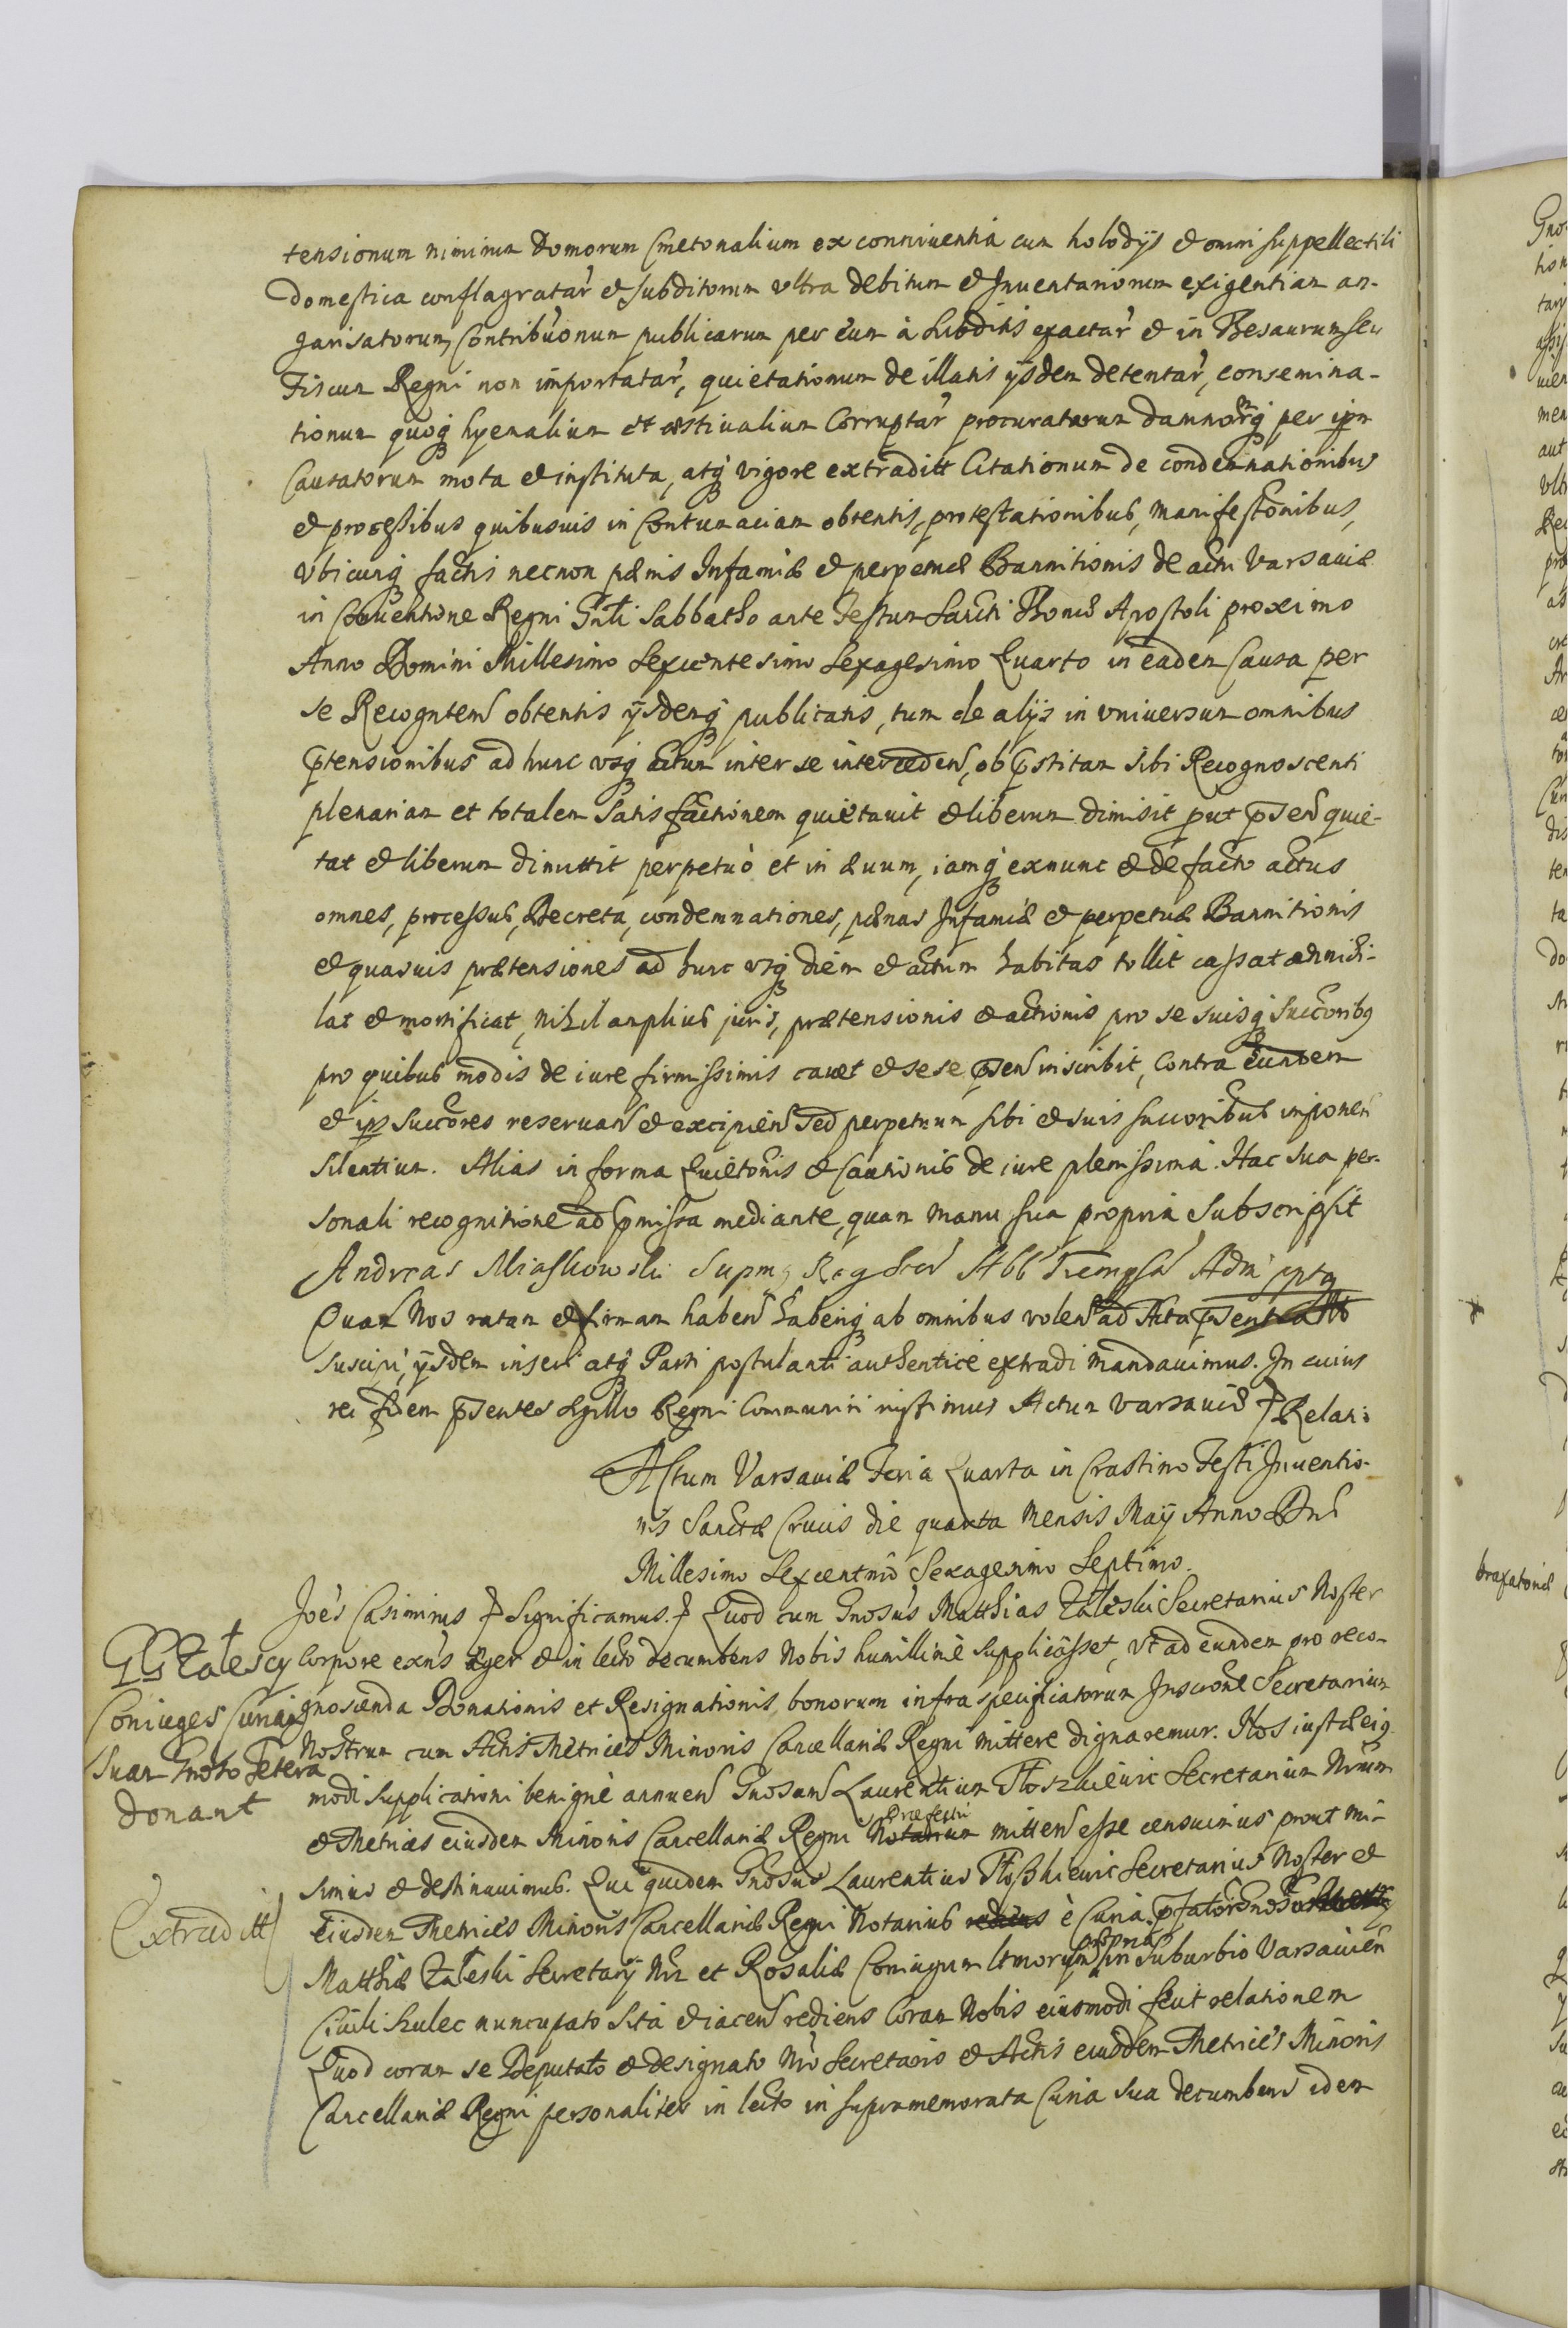 tensionum nimirum Domorum Cmetonalium ex conniuentia cum holodijs et omni suppellectili
domestica conflagratar' et subditorum vltra debitum et Inuentariorum exigentiam an-
garisatorum, Contributionum publicarum per eum à subditis exactar' et in Thesaurum seu
Fiscum Regni non importatar', quietationum de illatis ijsdem detentar', consemina-
tionum quoq hyemalium et æstiualium Corruptar' procuratarum damnorq per ipm
Causatorum mota et instituta, atq vigore extraditt Citationum de condemnationibus
et processibus quibusuis in Contumaciam obtentis, protestationibus, manifestonibus,
vbicunq factis necnon pænis Infamiæ et perpetuæ Bannitionis de actu Varsauiæ
in Conuentione Regni Gnli Sabbatho ante Festum Sancti Thomæ Apostoli proximo
Anno Domini Millesimo Sexcentesimo Sexagesimo Quarto in eadem Causa per
se Recogntem obtentis ijsdemq publicatis, tum de alijs in vniuersum omnibus
ptensionibus ad hunc vsq actum inter se interceden, ob pstitam sibi Recognoscenti
plenariam et totalem Satisfactionem quietauit et liberum dimisit put psen quie-
tat et liberum dimittit perpetuò et in æuum, iamq exnunc et de facto actus
omnes, processus, Decreta, condemnationes, pænas Infamiæ et perpetuæ Bannitionis
et quasuis prætensiones ad hunc vsq diem et actum habitas tollit cassat annihi-
lat et mortificat, nihil amplius juris, prætensionis et actionis pro se suisq Succoribq
pro quibus modis de iure firmissimis cauet et sese psen inscribit, Contra eundem
et ips Succores reseruan et excipien Sed perpetuum sibi et suis succoribus imponen
Silentium. Alias in forma Quietonis et Cautionis de iure plenissima. Hac sua per-
sonali recognitione ad pmissa mediante, quam manu sua propria Subscripsit
Andreas Miaskowski Supm Abb Trempsn Adm
Quam Nos ratam et firmam haben haberiq ab omnibus volen ad Acta psentia
suscipi, ijsdem inseri atq Parti postulanti authentice extradi mandauimus. In cuius
rei fidem psentes Sigillo Regni Communiri iussimus Actum Varsauiæ Relati
Actum Varsauiæ Feria Quarta in Crastino Festi Inuentio-
nis Sanctæ Crucis die quarta Mensis Maij Anno Dni
Millesimo Sexcentmo Sexagesimo Septimo.
Joes Casimirus Significamus. Quod cum Gnosus Matthias Zaleski Secretarius Noster
Corpore exns æger et in lecto decumbens Nobis humillimè supplicasset, vt ad eundem pro reco-
gnoscenda Donationis et Resignationis bonorum infra specificatorum Inscrone Secretarium
Nostrum cum Actis Metrices Minoris Cancellariæ Regni mittere dignaremur. Nos iustæ eiq
modi supplicationi benignè annuen Gnosum Laurentium Secretarium Nrum
et Metrices eiusdem Minoris Cancellariæ Regni Notarium mitten esse censuimus prout mi-
simus et destinauimus. Qui quidem Gnosus Laurentius Secretarius Noster et
Eiusdem Metrices Minoris Cancellariæ Regni Notarius è Curia pfator Gnosor
Matthiæ Zaleski Secretarij Nri et Rosaliæ Coniugum ltmorum propria in Suburbio Varsauien
Ciuili Sulec nuncupato Sita et iacen rediens Coram Nobis eiusmodi fecit relationem
Quod coram se Deputato et designato Nro Secretario et Actis eiusdem Metrices Minoris
Cancellariæ Regni personaliter in lecto in supramemorata Curia sua decumbens idem
GG Zalescy
Coniuges Curiam
Suam
donant
Extraditt
braxatoriæ